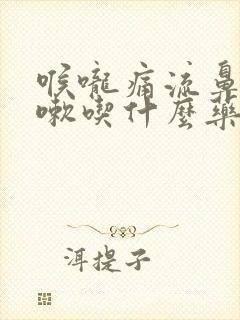 喉嚨痛流鼻
嗽喫什麼藥
洱提子